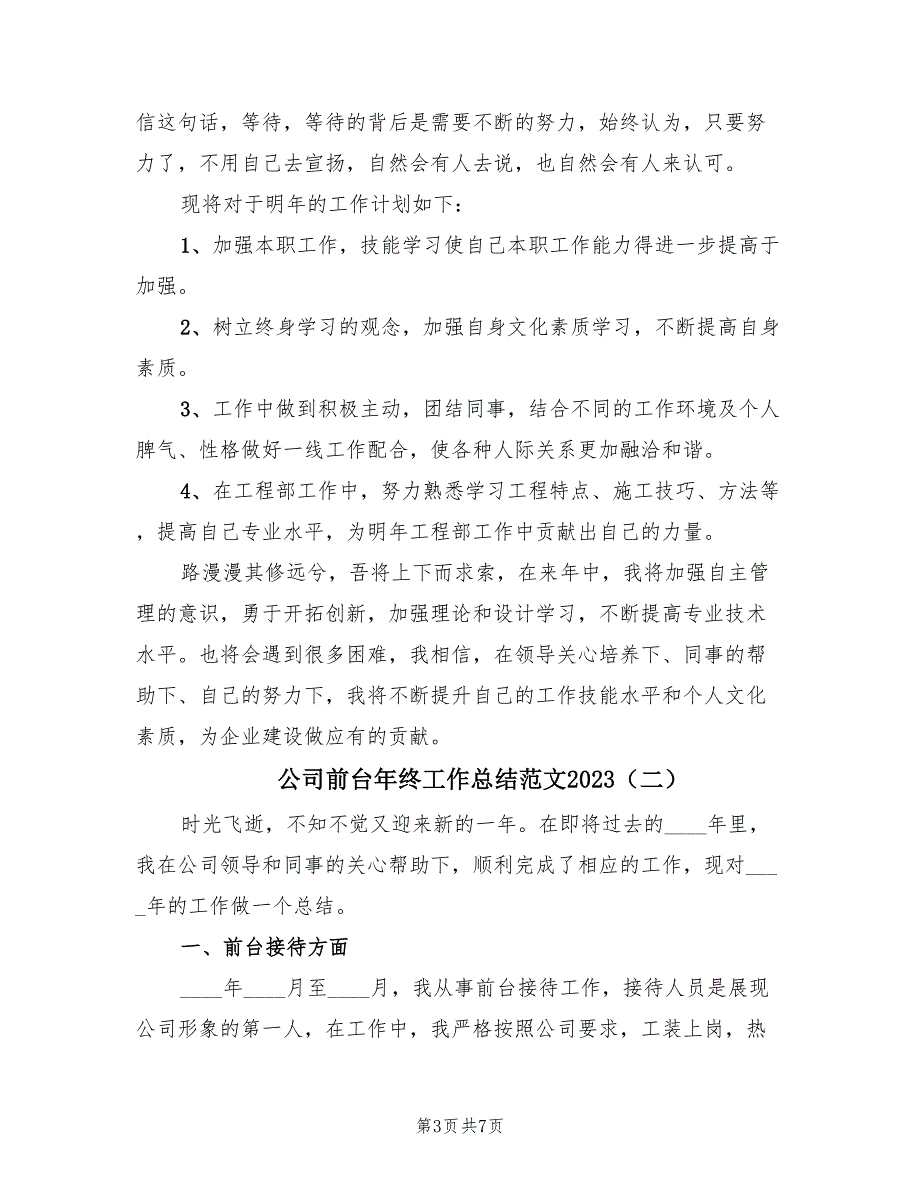 信这句话，等待，等待的背后是需要不断的努力，始终认为，只要努
力了，不用自己去宣扬，自然会有人去说，也自然会有人来认可。
现将对于明年的工作计划如下：
1、加强本职工作，技能学习使自己本职工作能力得进一步提高于
加强。
2、树立终身学习的观念，加强自身文化素质学习，不断提高自身
素质。
3、工作中做到积极主动，团结同事，结合不同的工作环境及个人
脾气、性格做好一线工作配合，使各种人际关系更加融洽和谐。
4、在工程部工作中，努力熟悉学习工程特点、施工技巧、方法等
，提高自己专业水平，为明年工程部工作中贡献出自己的力量。
路漫漫其修远兮，吾将上下而求索，在来年中，我将加强自主管
理的意识，勇于开拓创新，加强理论和设计学习，不断提高专业技术
水平。也将会遇到很多困难，我相信，在领导关心培养下、同事的帮
助下、自己的努力下，我将不断提升自己的工作技能水平和个人文化
素质，为企业建设做应有的贡献。
公司前台年终工作总结范文2023（二）
时光飞逝，不知不觉又迎来新的一年。在即将过去的____年里，
我在公司领导和同事的关心帮助下，顺利完成了相应的工作，现对___
_年的工作做一个总结。
一、前台接待方面
____年____月至____月，我从事前台接待工作，接待人员是展现
公司形象的第一人，在工作中，我严格按照公司要求，工装上岗，热
第3页共7页